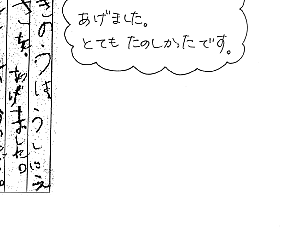 きのうはうしにえ
さを、あげました。
あげました。
とても たのしかったです。